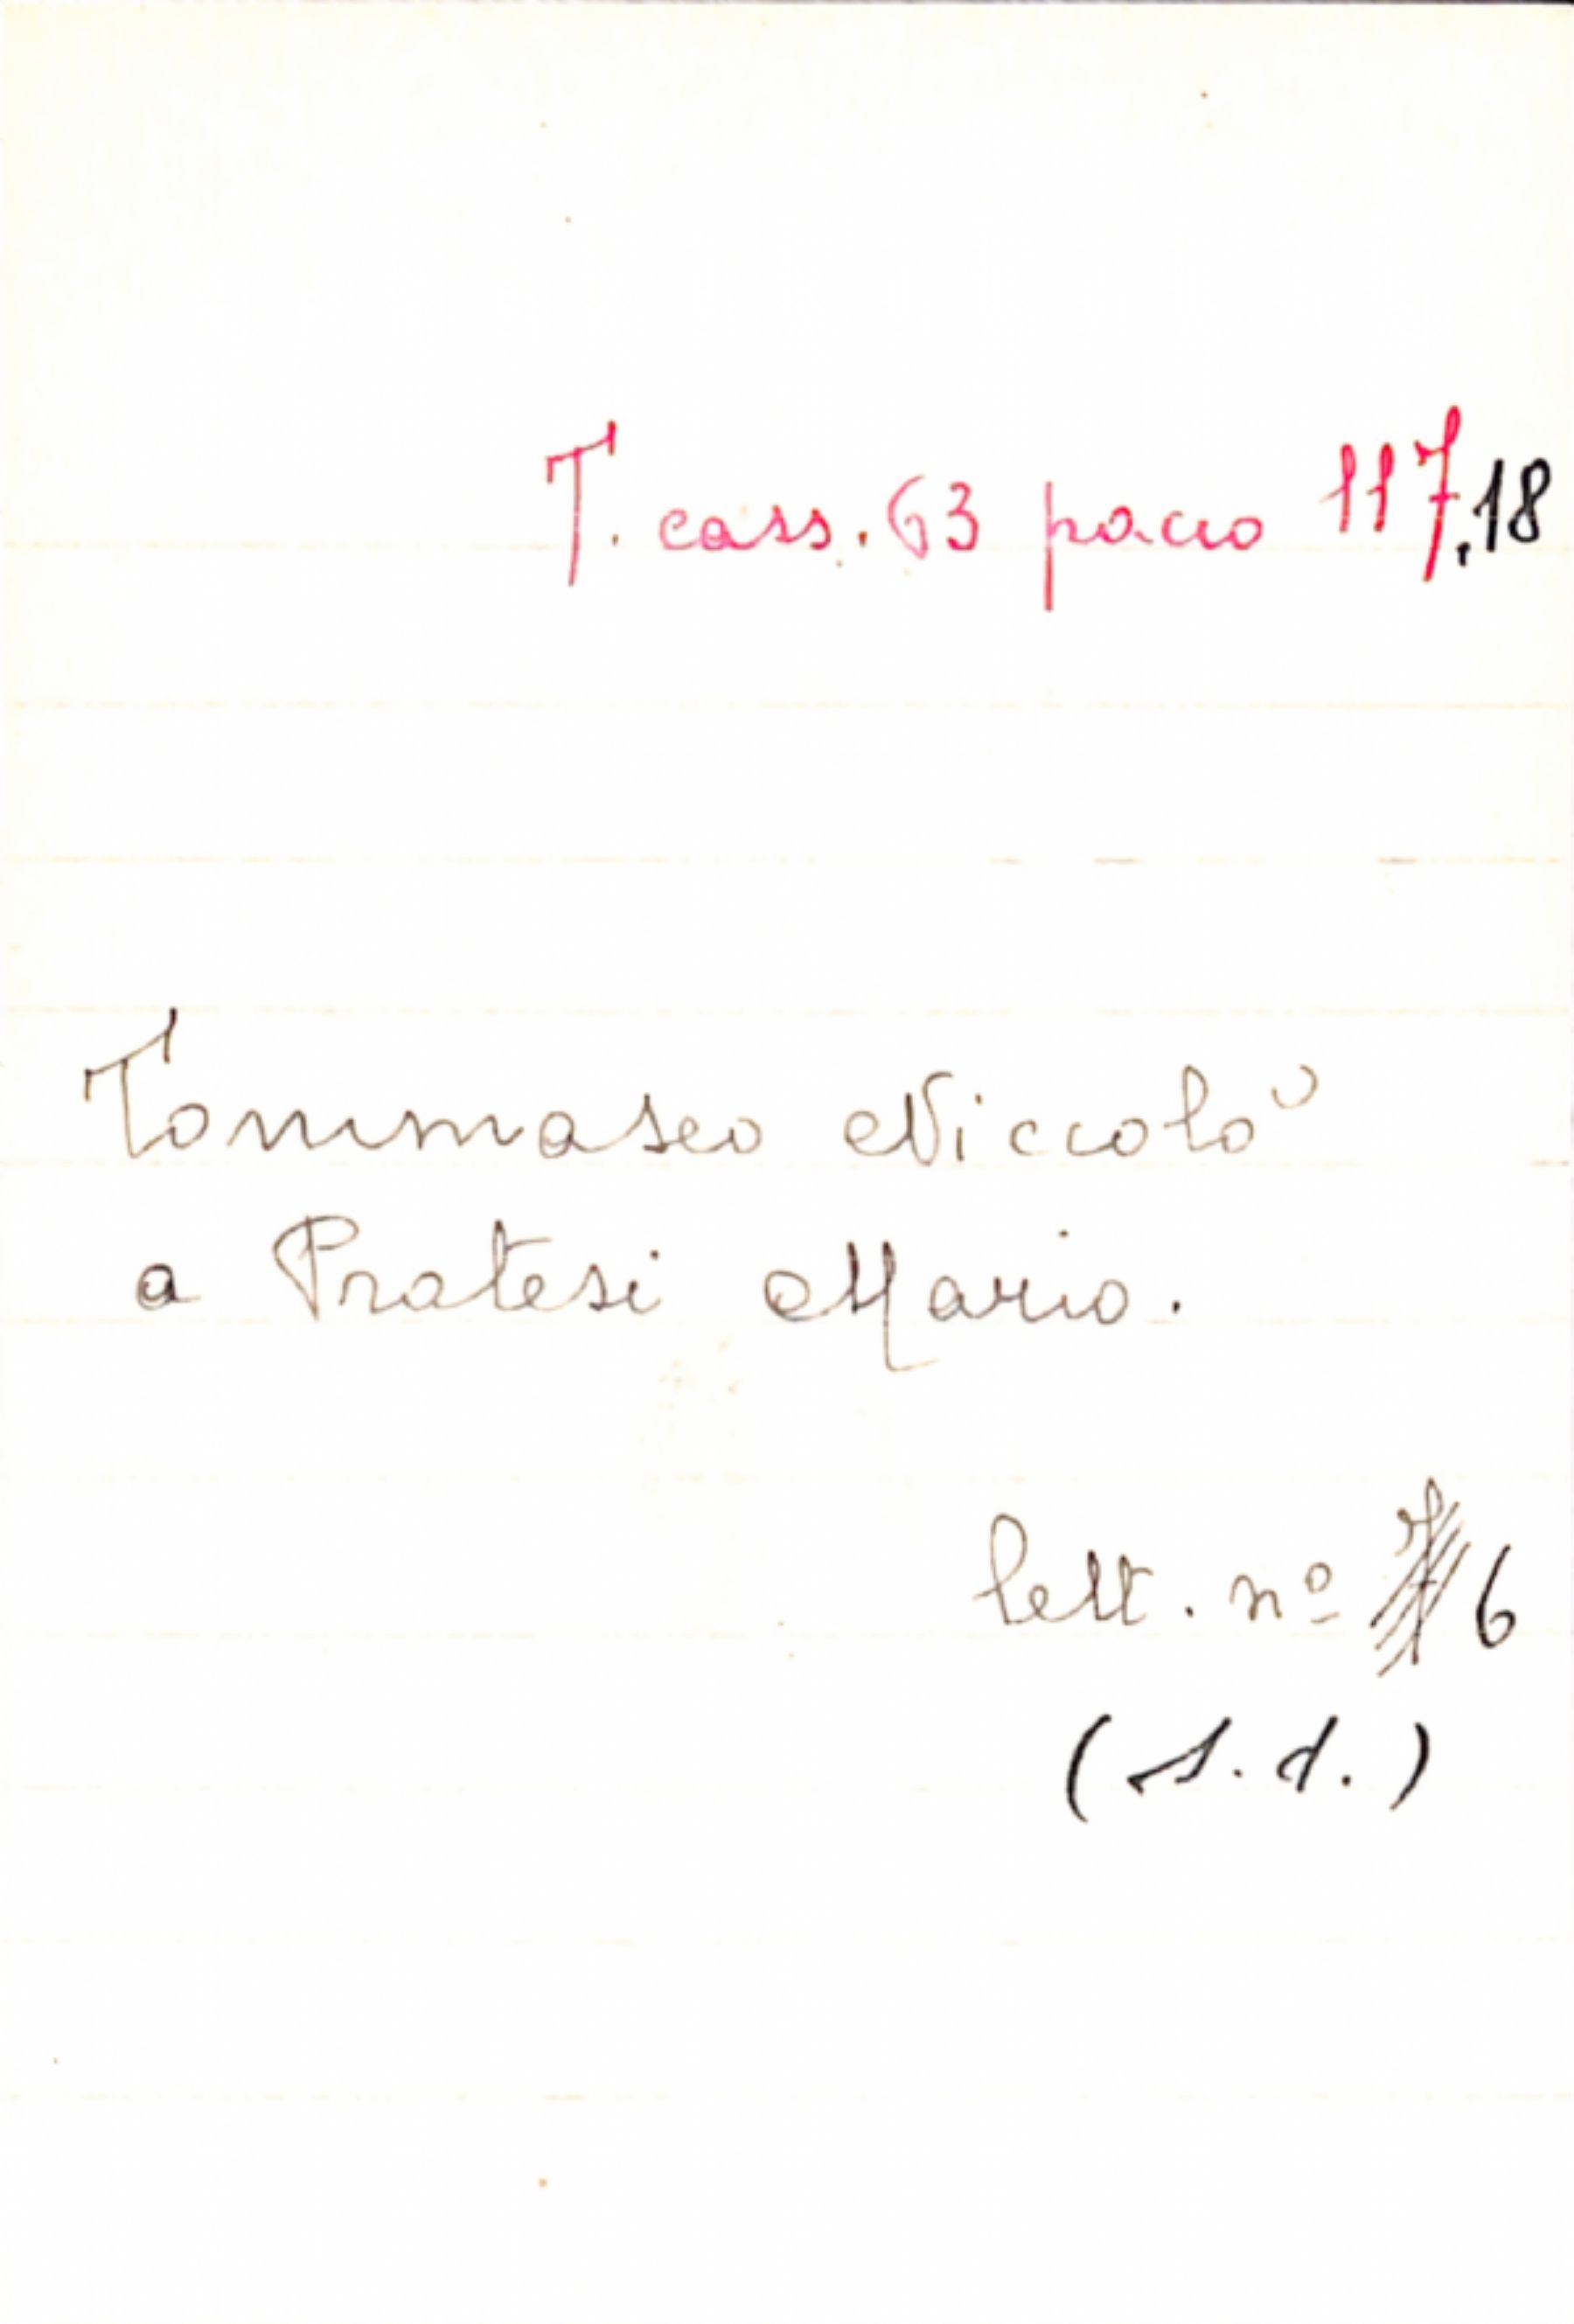 T. cass. 63 pacco 117.18
Tommaseo Niccolò
a Pratesi Mario.
lett. nº 7 6
(s. d.)